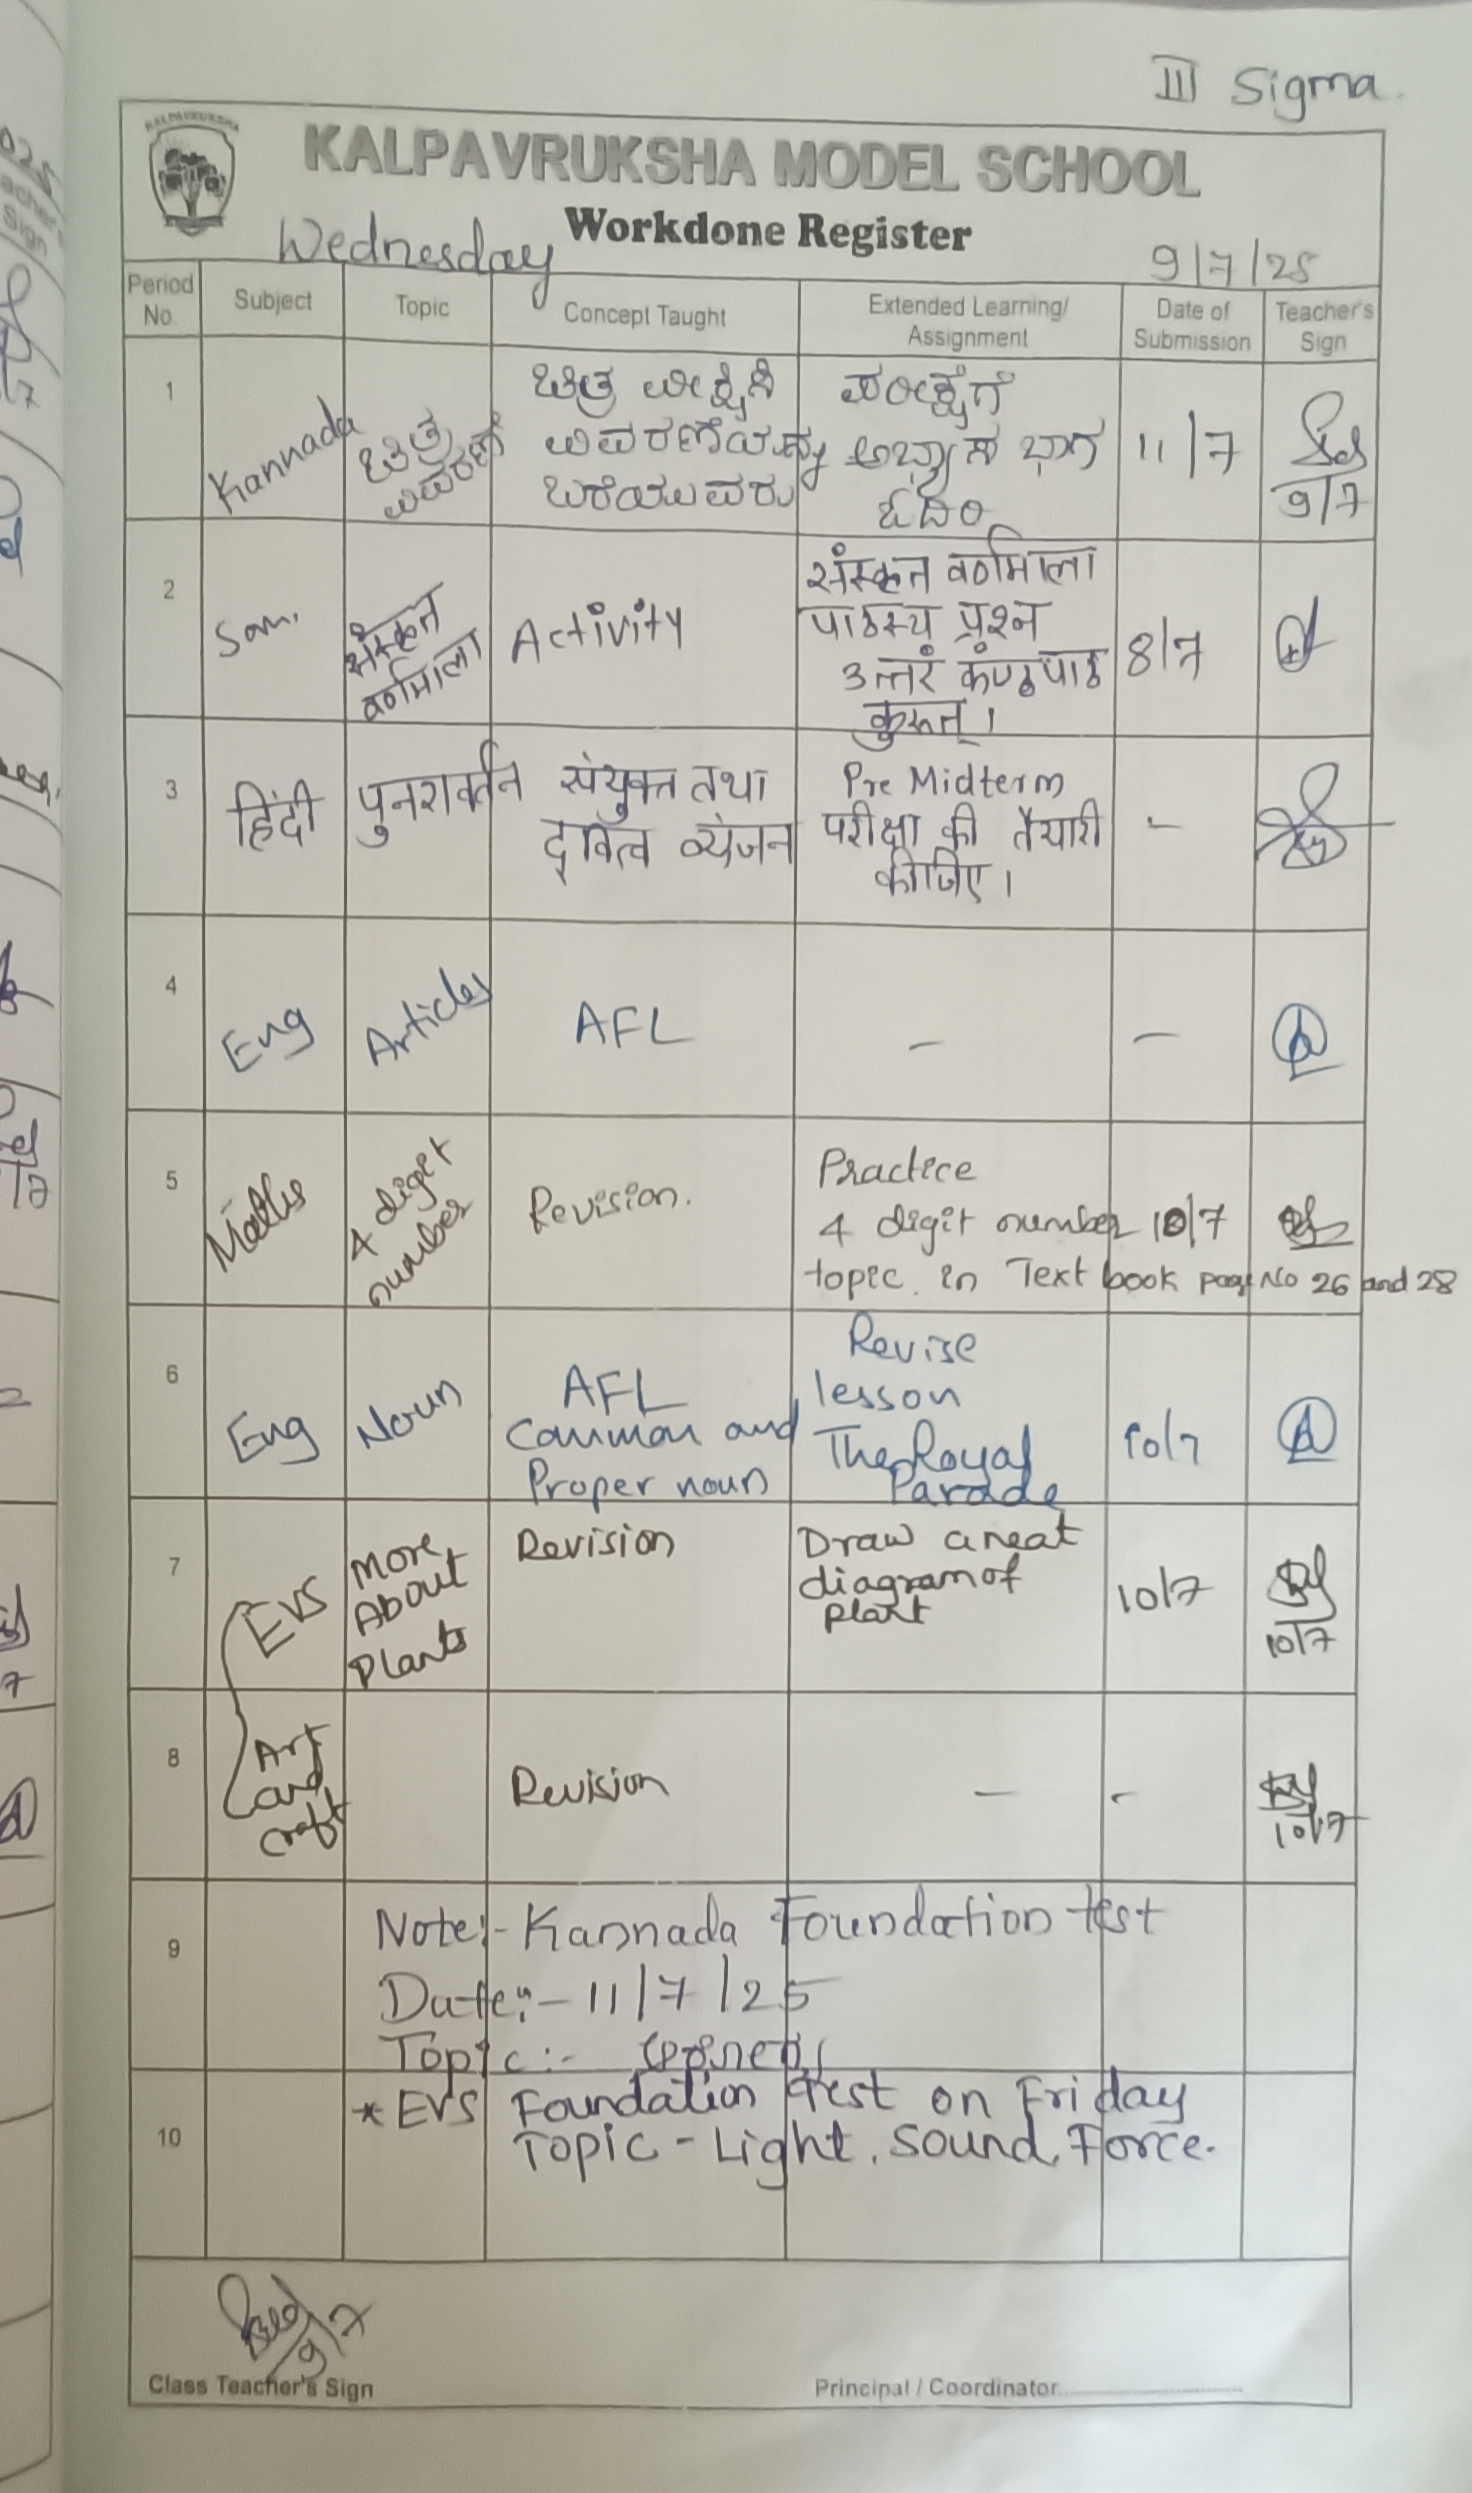 III Sigma.
KALPAVRUKSHA
KALPAVRUKSHA MODEL SCHOOL
Workdone Register
Wednesday
9/7/25
Period No.
Subject
Topic
Concept Taught
Extended Learning/ Assignment
Date of Submission
Teacher's Sign
1
Kannada
ಚಿತ್ರ
ವಿವರಣೆ
ಚಿತ್ರ ವೀಕ್ಷಿಸಿ
ವಿವರಣೆಯನ್ನು
ಬರೆಯುವರು
ಪರೀಕ್ಷೆಗೆ
ಅಭ್ಯಾಸ ಭಾಗ
ಓದಿರಿ
11/7
9/7
2
Sam.
संस्कृत
वर्णमाला
Activity
संस्कृत वर्णमाला
पाठस्य प्रश्न
उत्तरं कंण्ठपाठ
कुरुत्।
8/7
3
हिंदी
पुनरावर्तन
संयुक्त तथा
द्वित्व व्यंजन
Pre Midterm
परीक्षा की तैयारी
कीजिए।
-
4
Eng
Articles
AFL
-
-
5
Maths
4 diget
number
Revision.
Practice
4 digit number
topic. in Text book page No 26 and 28
10/7
6
Eng
Noun
AFL
Common and
Proper noun
Revise
lesson
The Royal
Parade
10/7
7
EVS
More
About
Plants
Revision
Draw a neat
diagram of
plant
10/7
10/7
8
Art
and
craft
Revision
-
-
10/7
9
Note:- Kannada Foundation test
Date:- 11/7/25
Topic:-
10
* EVS Foundation Test on Friday
Topic - Light, Sound, Force.
9/7
Class Teacher's Sign
Principal / Coordinator